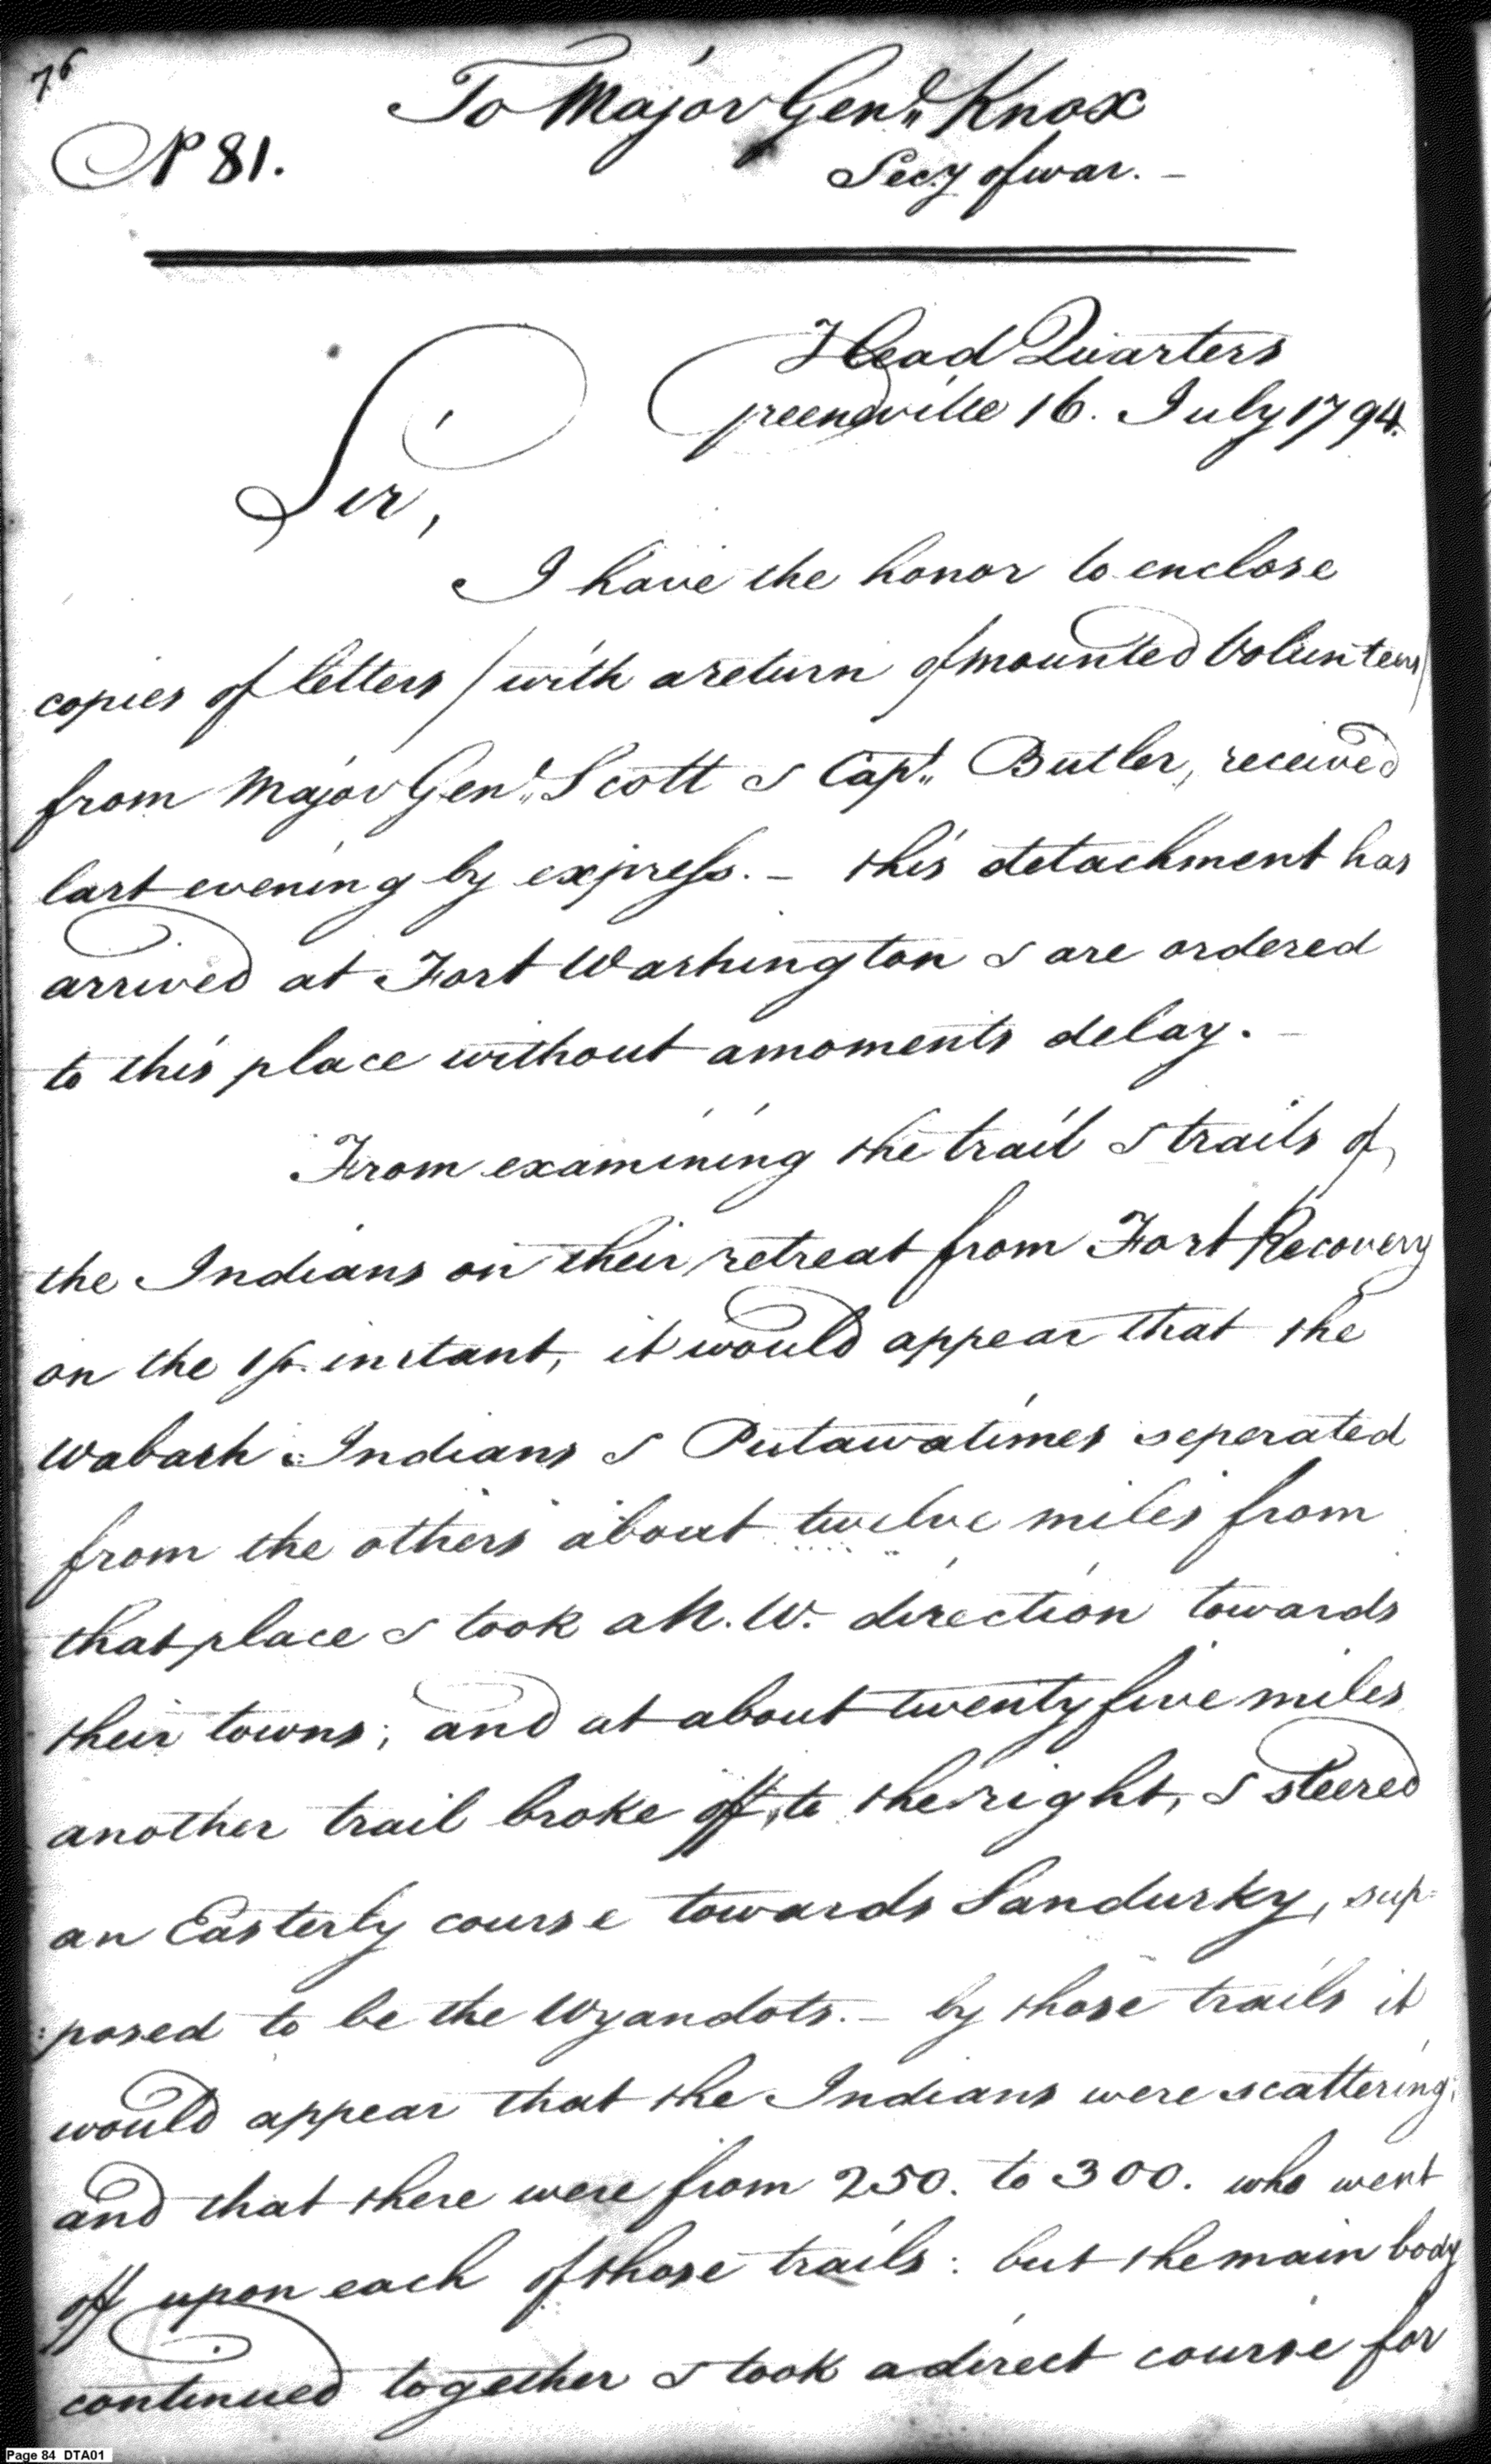 76
To Major Genl Knox
No 81.
Secy of war. -
Head Quarters
Greeneville 16. July 1794.
Sir,
I have the honor to enclose
copies of letters / with a return of mounted Volunteers /
from Major Genl Scott & Capt Butler, received
last evening by express. - this detachment has
arrived at Fort Washington & are ordered
to this place without a moments delay. -
From examining the trail & trails of
the Indians on their retreat from Fort Recovery
on the 1st. instant, it would appear that the
Wabash Indians & Putawatimes seperated
from the others about twelve miles from
that place & took a N. W. direction towards
their towns; and at about twenty five miles
another trail broke off, to the right, & steered
an Easterly course towards Sandusky, sup:
:posed to be the Wyandots. - by those trails it
would appear that the Indians were scattering;
and that there were from 250. to 300. who went
off upon each of those trails: but the main body
continued together & took a direct course for
Page 84 DTA01